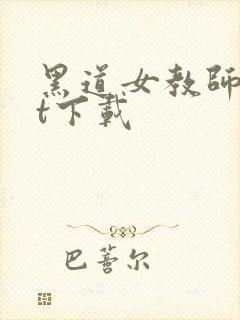 黑道女教師
t下載
巴蕾尔